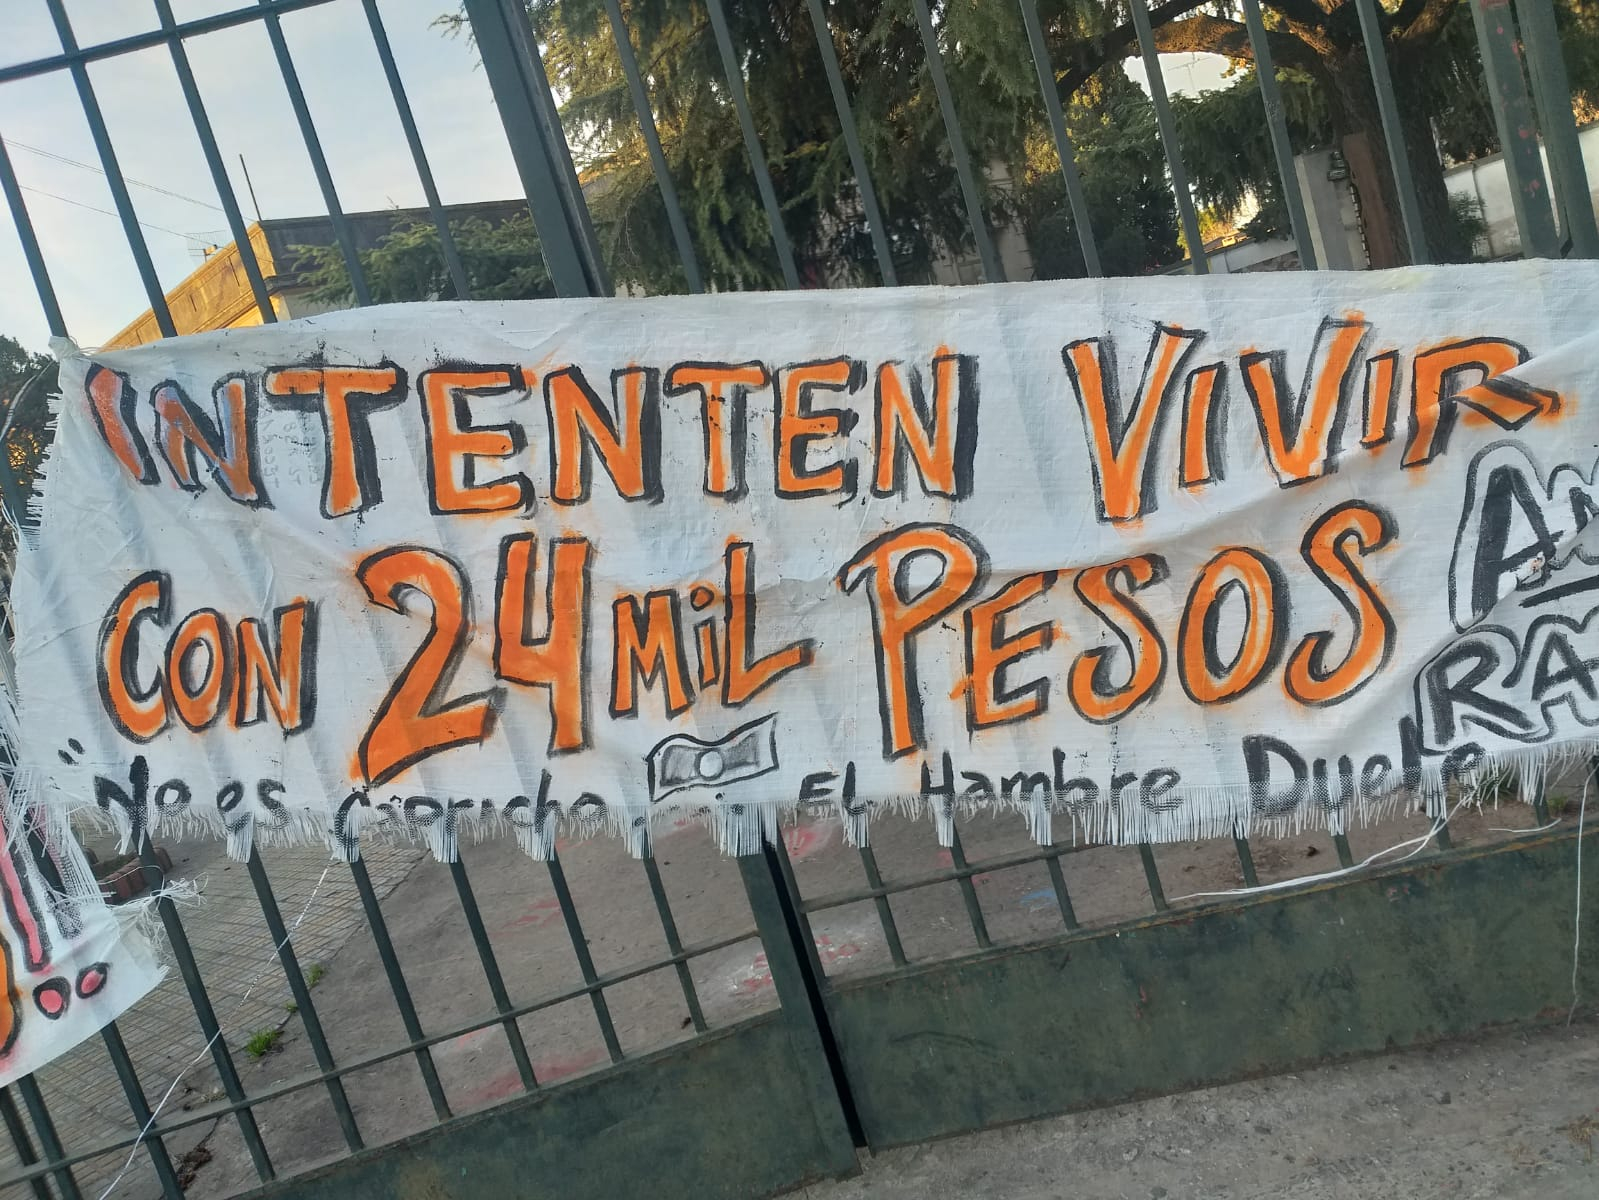 INTENTEN VIVIR
CON 24 MIL PESOS
"No es capricho... El Hambre Duele
RA
!!